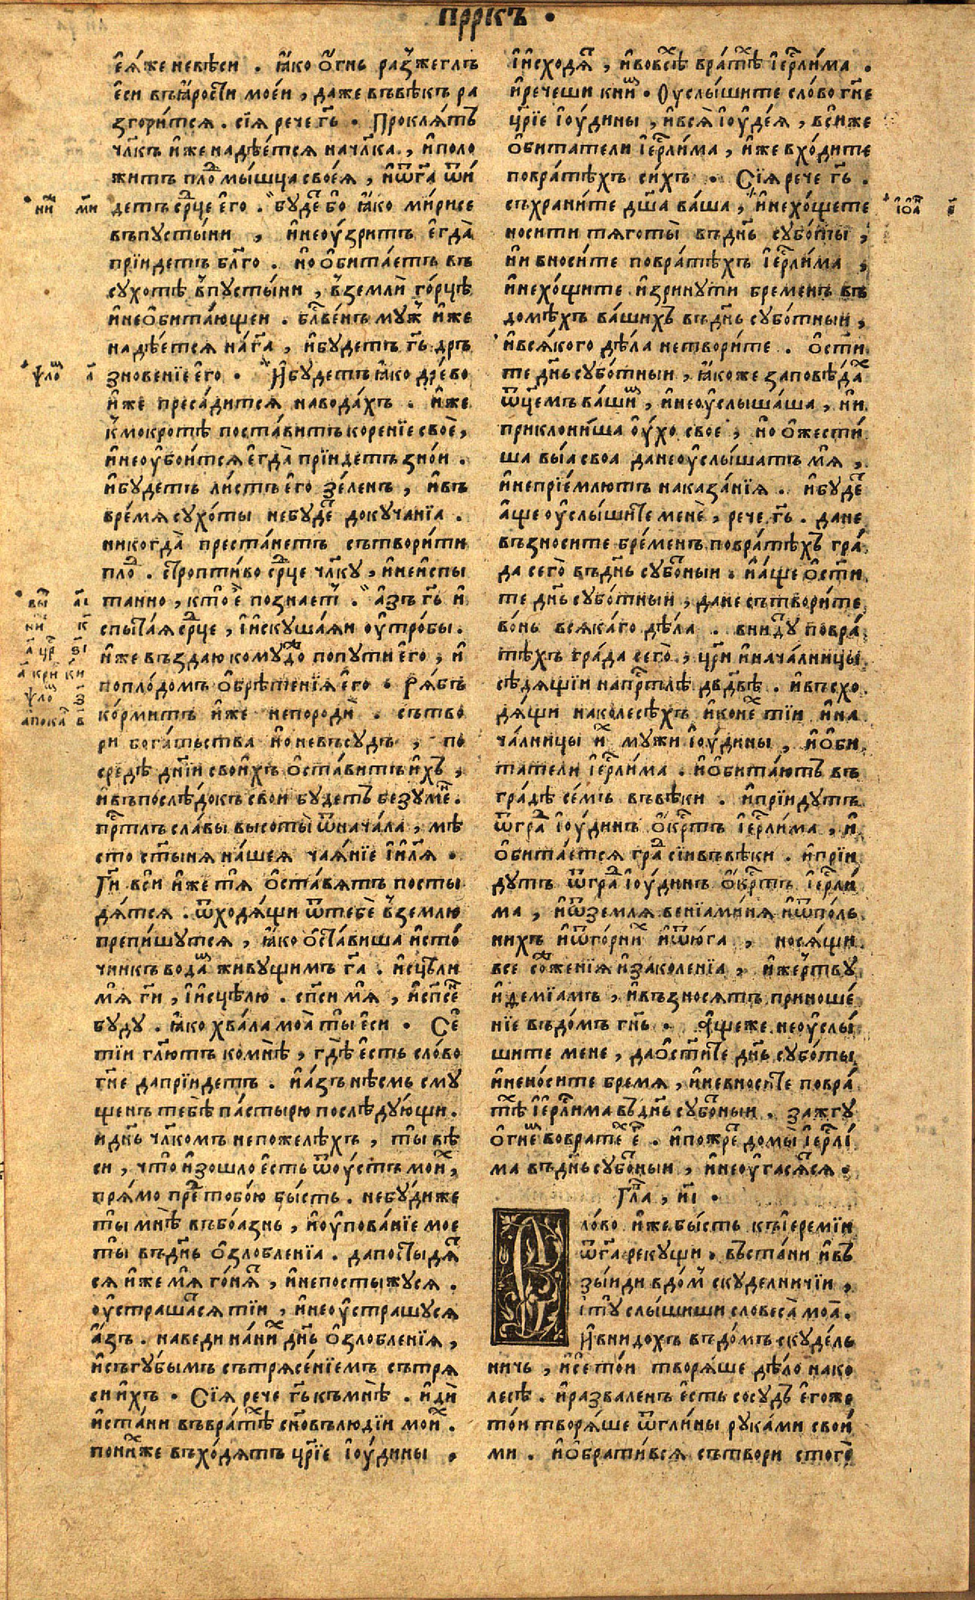 пррⷪ҇къ .
е҆ѧ́же невѣ́си . ꙗ҆́ко ѻ҆́гнь разже́глъ
е҆сѝ въꙗ҆́рости мое́й , да́же въвѣ́къ ра
згори́тсѧ . сїѧ̀ рече гь҃ . Про́клѧтъ
чл҃къ и҆́же надѣ́етсѧ нач҃лка , и҆поло
житъ пло́ⷮ мы́шца своеѧ̀ , и҆ѿг҃а ѿи́
детъ ср҃це е҆го̀ . бу́деⷮ бо ꙗ҆́ко ми́рисе
въпусты́ни , и҆неоу҆́зритъ е҆гда̀
прїи́детъ бл҃го . но ѻ҆бита́етъ въ
су́хотѣ в̾пусты́ни , в̾земли́ го́рцѣ
и҆неѻ҆бита́ющей . блⷭ҇ве́нъ му́ж̾ и҆́же
надѣ́етсѧ наг҃а , и҆бу́детъ гь҃ дръ
знове́нїе е҆го̀ . И҆бу́детъ ꙗ҆́ко дре́во
и҆́же преса́дитсѧ навода́хъ . и҆́же
к̾мокротѣ̀ поста́витъ коре́нїе своѐ ,
и҆неоу҆бои́тсѧ е҆гда̀ прїи́детъ зно́й .
и҆бу́детъ ли́стъ е҆го̀ зе́ленъ , и҆въ
вре́мѧ су́хоты небу́деⷮ докуча́нїа .
никогда̀ преста́нетъ сътвори́ти
пло́ⷣ . стропти́во ср҃це чл҃ку , и҆неи҆спы
та́нно , кто̀ е҆̀ позна́етъ . а҆́зъ гь҃ и҆
спыта́ѧ ср҃це , і҆и҆скуша́ѧи оу҆тро́бы .
и҆́же възда́ю кому́ждо попути́ е҆го̀ , и҆
поплодо́мъ ѻ҆брѣте́нїѧ е҆го̀ . Рѧ́бъ
ко́рмитъ и҆́же непородѝ . сътво
ри бога́тьства и҆неѡ҆су́дъ , по
средѣ̀ дні́й свои́хъ ѻ҆ста́витъ и҆́хъ ,
и҆въпослѣ́докъ сво́й бу́детъ безу́менъ .
прⷭ҇то́лъ сла́вы высоты̀ ѿнача́ла , мѣ
сто ст҃ы́нѧ на́шеѧ ча́ѧнїе і҆и҃лѧ .
Гⷭ҇и всѝ и҆́же тѧ̀ ѻ҆ста́вѧтъ посты
дѧ́тсѧ . ѿходѧ́щи ѿтебѐ в̾зе́млю
препи́шутсѧ , ꙗ҆́ко ѻ҆ста́виша и҆сто́
чникъ вода́ⷨ живу́щимъ г҃а . и҆сцѣли
мѧ̀ гⷭ҇и , і҆и҆сцѣлю́ . сп҃си мѧ̀ , и҆сп҃се́нъ
бу́ду . ꙗ҆́ко хвала̀ моѧ̀ ты̀ е҆сѝ . Се́
тїи гл҃ютъ комнѣ̀ , гдѣ̀ е҆́сть сло́во
гн҃е дапрїи́детъ . и҆а҆́зъ нѣ́смь сму
ще́нъ тебѣ̀ па́стырю послѣ́дующи .
и҆ дн҃ь чл҃комъ непоже́лѣхъ , ты̀ вѣ́
си , что̀ и҆зошло̀ е҆́сть ѿоу҆́стъ мои́хъ ,
прѧ́мо преⷣ тобо́ю бы́сть . небу́диже
ты̀ мнѣ̀ въбоѧ́знь , и҆оу҆пова́нїе мое
ты̀ въдн҃ь ѻ҆злобле́нїа . дапостыдѧ́т
сѧ и҆́же мѧ̀ гонѧ́ⷮ , и҆непостыжу́сѧ .
оу҆страша́тсѧ ті́и , и҆неоу҆страшу́сѧ
а҆́зъ . наведи́ на́ни дн҃ь ѻ҆злобле́нїѧ ,
и҆сѫгу́бымъ сътрѧсе́нїемъ сътрѧ
си и҆́хъ . Сїѧ̀ рече гь҃ къмнѣ̀ . и҆дѝ
и҆ста́ни въвра́тѣхъ сн҃овъ людїй мои́хъ .
пони́же въхо́дѧтъ цр҃іе і҆оу́дины .
і҆и҆схо́дѧⷮ , и҆вовсѣ́хъ вра́тѣхъ і҆ерⷭ҇ли́ма .
и҆рече́ши кни́мъ . Оу҆слы́шите сло́во гн҃е
цр҃їе і҆оу́дины , и҆всѧ̀ і҆оуде́ѧ , всѝ же
ѻ҆бита́тели і҆ерⷭ҇ли́ма , и҆́же вхо́дите
повра́тѣхъ си́хъ . Сїѧ̀ рече гь҃ .
съхрани́те дш҃а ва́ша , и҆нехо́щете
носи́ти тѧ́готы̀ въдн҃ь субо́ты ,
ни вноси́те повра́тѣхъ і҆ерⷭ҇ли́ма ,
и҆нехо́щите и҆зри́нути бре́менъ въ
домѣ́хъ ва́шихъ въдн҃ь субо́тный ,
и҆всѧ́кого дѣ́ла нетвори́те . ѻ҆ст҃и
те дн҃ь субо́тныи , ꙗ҆́коже заповѣ́даⷯ
ѿце́мъ ва́шиⷨ , и҆неоу҆слы́шаша , ни
приклони́ша оу҆́хо своѐ , но ѻ҆жести́
ша вы́а своа̀ данеоу҆слы́шатъ мѧ̀ ,
и҆непрїе́млютъ наказа́нїѧ . и҆бу́деⷮ
а҆́ще оу҆слы́шите менѐ , рече гь҃ . дане
възно́сите бре́менъ повра́тѣхъ гра́
да сего̀ въдн҃ь субо́тныи . и҆а҆́ще ѻ҆ст҃и
те дн҃ь субо́тныи , дане сътвори́те
во́нь всѧ́каго дѣ́ла . вни́дуⷮ повра́
тѣхъ гра́да сего̀ , цр҃и и҆нача́лницы
сѣдѧ́щїи напрⷭ҇то́лѣ дв҃двѣ . и҆въсхо
дѧ́щи наколе́сѣхъ и҆ко́нехъ ті́и и҆на
ча́лницы и҆́хъ му́жи і҆оу́дины , и҆ѻ҆би
та́тели і҆ерⷭ҇ли́ма . и҆ѻ҆бита́ютъ въ
гра́дѣ се́мъ въвѣ́ки . и҆прїи́дутъ
ѿгра́ⷣ і҆оу́динъ ѻ҆́крⷭ҇тъ і҆ерⷭ҇ли́ма , и҆
ѻ҆бита́етсѧ гра́ⷣ сїи въвѣ́ки . и҆прїи́
дутъ ѿгра́ⷣ і҆оу́динъ ѻ҆́крⷭ҇тъ і҆ерⷭ҇ли́
ма , и҆ѿземлѧ̀ венїами́нѧ и҆ѿпо́ль
нихъ и҆ѿго́рниⷯ и҆ѿю́га , носѧ́щи
все съжже́нїѧ и҆заколе́нїа , и҆же́ртву
и҆ демїа́мъ , и҆възно́сѧтъ приноше́
нїе въдо́мъ гн҃ь . А҆́щеже неоу҆слы́
шите мене , даѻ҆ст҃и́те дн҃ь субо́ты
и҆нено́сите бре́мѧ , и҆невно́сите повра́
тѣхъ і҆ерⷭ҇ли́ма въдн҃ь субо́тныи . зажгу́
ѻ҆́гнеⷨ вовра́тѣхъ е҆гѡ̀ . и҆пожре́ⷮ домы̀ і҆ерⷭ҇ли́
ма въдн҃ь субо́тныи , и҆неоу҆гаса́етсѧ .
Гла҃ , и҃і .
Сло́во и҆́же бы́сть къі҆еремі́и
ѿг҃а реку́щи . въста́ни и҆въ
зы́иди вдо́мъ скуде́лничїи ,
і҆ту̀ слы́шиши словеса̀ моа̀ .
И҆вни́дохъ въдо́мъ скуде́ль
ничь , и҆се́ то́и творѧ́ше дѣ́ло нако
лесѣ̀ . и҆разва́ленъ е҆́сть сосу́дъ е҆го́же
то́и творѧ́ше ѿгли́ны рука́ми свои́
ми . и҆ѻ҆брати́всѧ сътвори́ стого̀